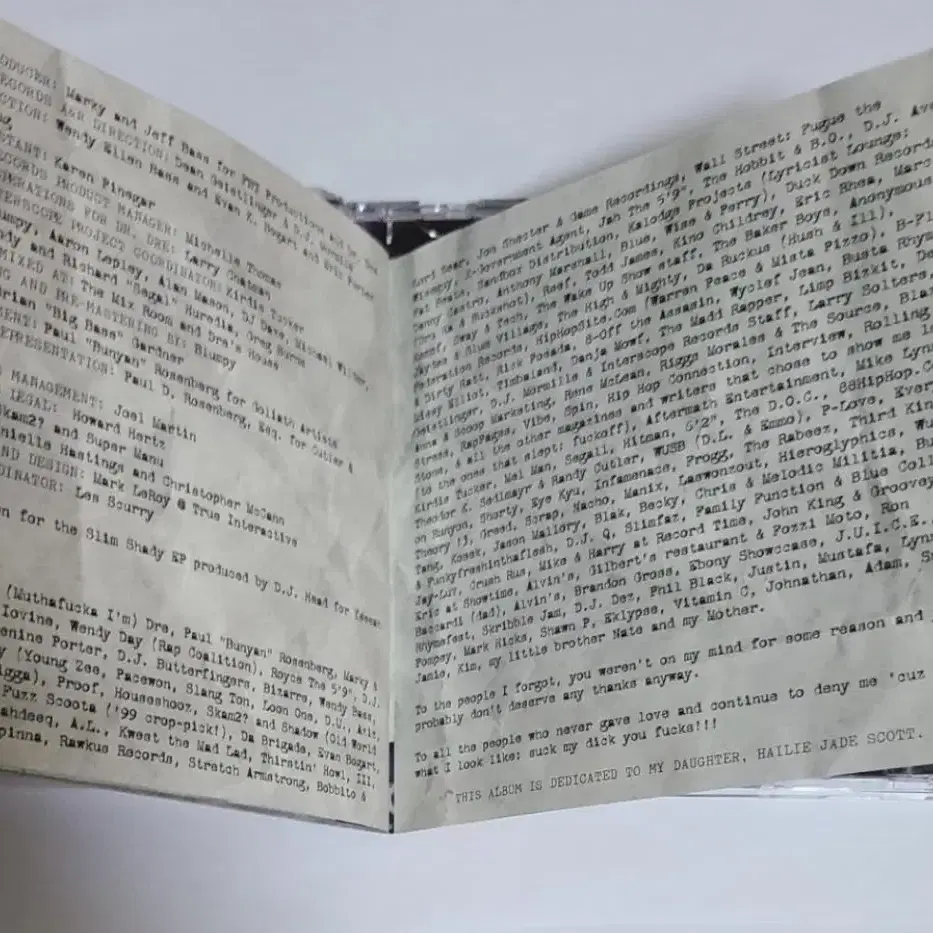 ODUCER: Marky and Jeff Bass for FBT Productions and Dr. Dre
ECORDS A&R DIRECTION: Dean Geistlinger & D.J. Mormile
CTION: Wendy Ellen Bass and Evan K. Bogart and Eric Porter
ng
STANT: Karen Pinegar
ECORDS PRODUCT MANAGER: Michelle Thomas
OPERATIONS FOR DR. DRE: Larry Chatman
TERSCOPE PROJECT COORDINATOR: Kirdis Tucker
umpy, Aaron Lepley, Alan Mason, DJ Dave, Michael Wilder,
ody and Richard "Segal" Huredia, J Greg Burns
MIXED AT: The Mix Room and Dre's House
NG AND PRE-MASTERING BY: Blumpy
Brian "Big Bass" Gardner
MENT: Paul "Bunyan" Rosenberg for Goliath Artists
REPRESENTATION: Paul D. Rosenberg, Esq. for Cutler &
S MANAGEMENT: Joel Martin
LEGAL: Howard Hertz
Skam2? and Super Manu
nielle Hastings and Christopher McCann
AND DESIGN: Mark LeRoy @ True Interactive
DINATOR: Les Scurry
on for the Slim Shady EP produced by D.J. Head for
(Muthafucka I'm) Dre, Paul "Bunyan" Rosenberg, Marky &
Iovine, Wendy Day (Rap Coalition), Royce The 5'9", D.J.
enine Porter, D.J. Butterfingers, Bizarre, Wendy Bass,
y (Young Zee, Pacewon, Slang Ton, Loon One, D.U., Axis,
igga), Proof, Houseshooz, Skam2? and Shadow (Old World
Fuzz Scoota ('99 crop-pick!), Da Brigade, Evan Bogart,
ahdeeq, A.L., Kwest the Mad Lad, Thirstin' Howl, III,
pinna, Rawkus Records, Stretch Armstrong, Bobbito &
Lord Sear, Jon Shecter & Game Recordings, Wall Street; Fugue the
Wiseppy, X-Government Agent, Jah The 5'9", The Hobbit & B.O., D.J. Ave
Fat Beats, Sandbox Distribution, Kalodge Projects (Lyricist Lounge;
Danny Castro, Anthony Marshall, Blue, Wise & Perry), Duck Down Record
& Buckshot), Reef, Todd James, Kino Childrey, Eric Rhea, Marc
Sway & Tech, The Wake Up Show staff, The Baker Boys, Anonymous
Jaytee & Glue Village, The High & Mighty, Da Ruckus (Hush & Ill),
Federation Records, HipHopSite.Com (Warren Peace & Mista Pizzo), B-Fl
& Dirty Ratt, Rick Posada, S-Off the Assasin, Wyclef Jean, Busta Rhym
Missy Elliot, Timbaland, Danja Mowf, The Madd Rapper, Limp Bizkit, De
Geistlinger, D.J. Mormille & Interscope Records Staff, Larry Solters,
Anna & Scoop Marketing, Rene McLean, Riggs Morales & The Source, Blaz
Stress, RapPages, Vibe, Spin, Hip Hop Connection, Interview, Rolling
Stone, & all the other magazines and writers that chose to show me lo
(to the ones that slept: fuckoff), Aftermath Entertainment, Mike Lynn
Kirdis Tucker, Mel Man, Segall, Hitman, 5'2", The D.O.C., 88HipHop.Co
Theodor K. Sedlmayr & Randy Cutler, WUSB (D.L. & Emmo), P-Love, Ever
on Bunyon, Shorty, Eye Kyu, Infamenace, Frogg, The Rabeez, Third Kin
Theory 13, Greed, Scrap, Nacho, Manix, Laswonzout, Hieroglyphics, Wu
Tang, Kosek, Jason Mallory, Blak, Becky, Chris & Melodic Militia, Bu
& Funkyfreshintheflesh, D.J. Q, Slimfaz, Family Function & Blue Coll
Jay-Luv, Crush Rus, Mike & Harry at Record Time, John King & Groovey
Eric at Showtime, Alvin's, Gilbert's restaurant & Pozzi Moto, Ron
Baccardi (dad), Alvin's, Brandon Gross, Ebony Showccase, J.U.I.C.E.,
Rhymefest, Skribble Jam, D.J. Dez, Phil Black, Justin, Mustafa, Lynn
Pompey, Mark Hicks, Shawn P, Eklypse, Vitamin C, Johnathan, Adam, Sn
Jamie, Kim, my little brother Nate and my Mother.
To the people I forgot, you weren't on my mind for some reason and
probably don't deserve any thanks anyway.
To all the people who never gave love and continue to deny me 'cuz
what I look like: suck my dick you fucks!!!
THIS ALBUM IS DEDICATED TO MY DAUGHTER, HAILIE JADE SCOTT.